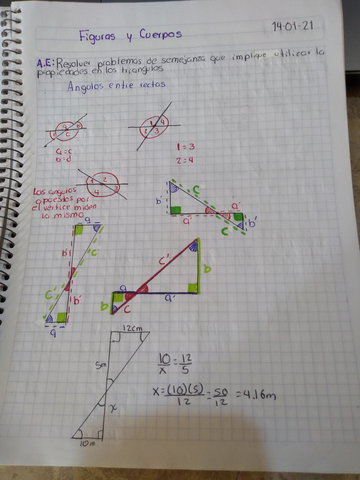 19-01-21
Figuras y Cuerpos
A.E: Resolver problemas de semejanza que implique utilizar la
propiedades en los triangulos
Angulos entre rectas
a=c
b=d
1=3
2=4
Los angulos
opuestos por
el vertice miden
lo mismo
1 2
4 3
b' c a'
a' c b'
a
b' c
c' b'
a
c' b
a a'
b c
12cm
5m
x
10m
10/x = 12/5
x = (10)(5)/12 = 50/12 = 4.16m